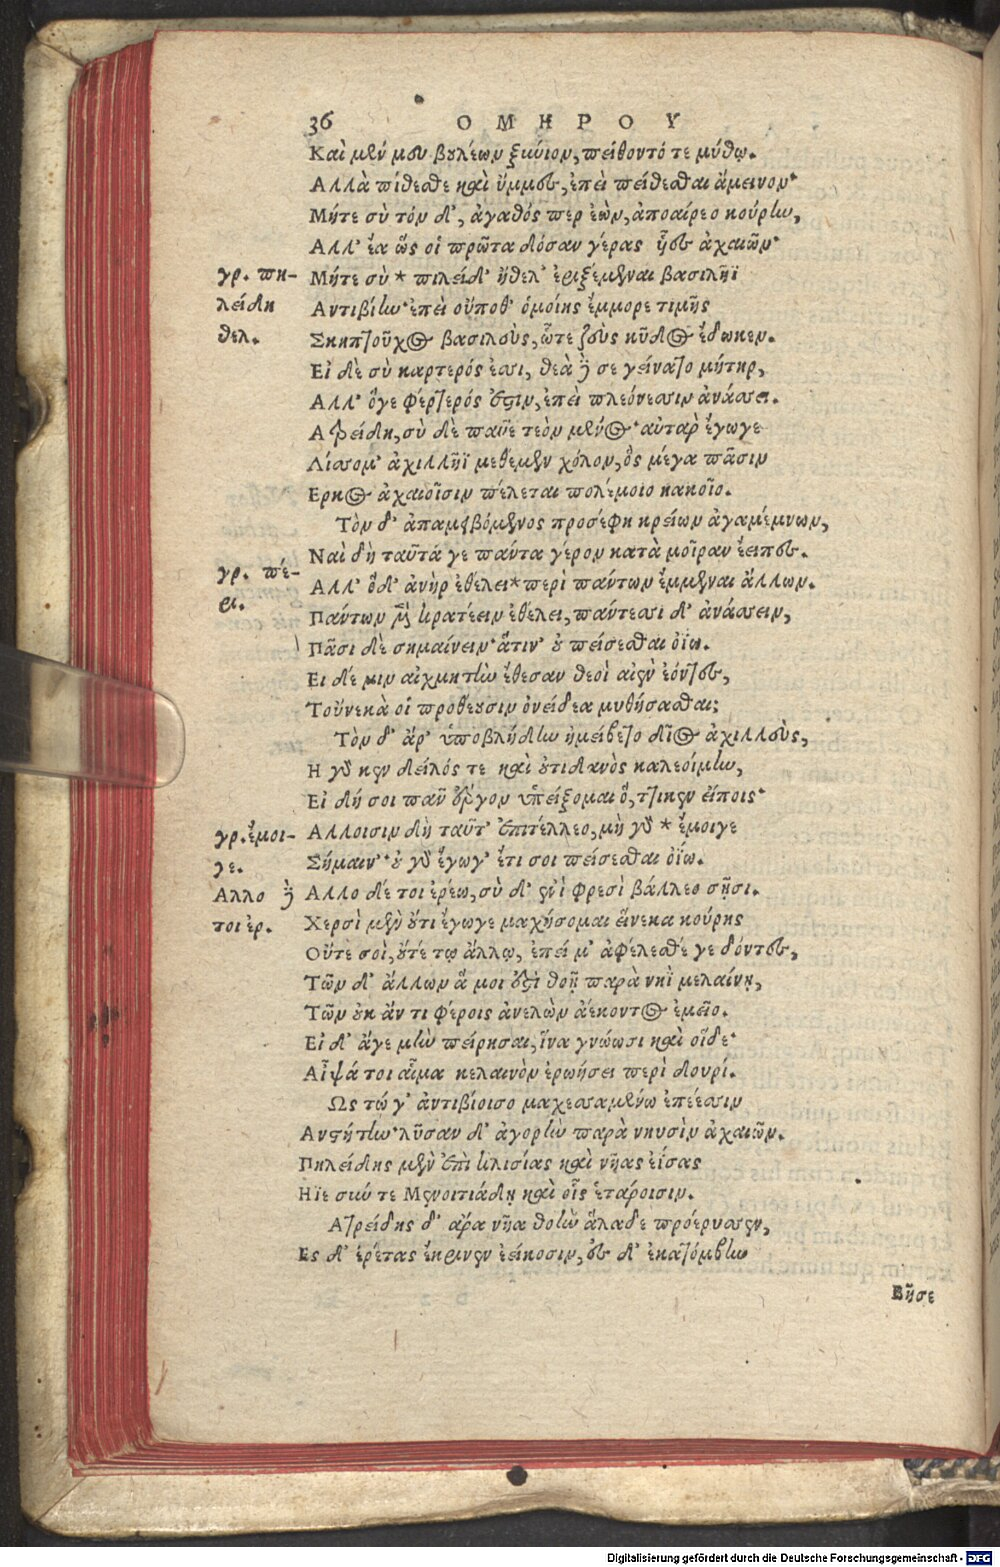 36 ΟΜΗΡΟΥ
Καὶ μέν μευ βουλέων ξύνιον, πείθοντό τε μύθῳ.
Αλλὰ πίθεσθε καὶ ὔμμες, ἐπεὶ πείθεσθαι ἄμεινον·
Μήτε σὺ τόν δ', ἀγαθός περ ἐὼν, ἀποαίρεο κούρην,
Αλλ' ἔα ὥς οἱ πρῶτα δόσαν γέρας ἧες ἀχαιῶν·
γρ. πη-
λείδη
θελ.
Μήτε σὺ * πηλείδ' ἤθελ' ἐριζέμεναι βασιλῆϊ
Αντιβίην· ἐπεὶ οὔποθ' ὁμοίης ἔμμορε τιμῆς
Σκηπτοῦχος βασιλεὺς, ὧτε ζεὺς κῦδος ἔδωκεν.
Εἰ δὲ σὺ καρτερός ἐσσι, θεὰ δέ σε γείνατο μήτηρ,
Αλλ' ὅγε φέρτερός ἐστιν, ἐπεὶ πλεόνεσσιν ἀνάσσει.
Ατρείδη, σὺ δὲ παῦε τεὸν μένος· αὐτὰρ ἔγωγε
Λίσσομ' ἀχιλλῆϊ μεθέμεν χόλον, ὃς μέγα πᾶσιν
Ερκος ἀχαιοῖσιν πέλεται πολέμοιο κακοῖο.
Τὸν δ' ἀπαμειβόμενος προσέφη κρείων ἀγαμέμνων,
Ναὶ δὴ ταῦτά γε πάντα γέρον κατὰ μοῖραν ἔειπες.
γρ. πέ-
ρι.
Αλλ' ὅδ' ἀνὴρ ἐθέλει * περὶ πάντων ἔμμεναι ἄλλων.
Πάντων μὲν κρατέειν ἐθέλει, πάντεσσι δ' ἀνάσσειν,
Πᾶσι δὲ σημαίνειν· ἅτιν' οὐ πείσεσθαι ὀΐω.
Ει δέ μιν αἰχμητὴν ἔθεσαν θεοὶ αἰὲν ἐόντες,
Τοὔνεκὰ οἱ προθέουσιν ὀνείδεα μυθήσασθαι;
Τὸν δ' ἄρ' ὑποβλήδην ἠμείβετο δῖος ἀχιλλεὺς,
Η γάρ κεν δειλός τε καὶ οὐτιδανὸς καλεοίμην,
Εἰ δή σοι πᾶν ἔργον ὑπείξομαι ὅ, ττικεν εἴποις·
γρ. ἔμοι-
γε.
Αλλοισιν δὴ ταῦτ' ἐπιτέλλεο, μὴ γὰρ * ἔμοιγε
Σήμαιν'· οὐ γὰρ ἔγωγ' ἔτι σοι πείσεσθαι ὀΐω.
Αλλο δέ
τοι ἐρ.
Αλλο δέ τοι ἐρέω, σὺ δ' ἐνὶ φρεσὶ βάλλεο σῇσι.
Χερσὶ μὲν οὔτι ἔγωγε μαχήσομαι εἵνεκα κούρης
Οὔτε σοὶ, οὔτέ τῳ ἄλλῳ, ἐπεί μ' ἀφέλεσθέ γε δόντες,
Τῶν δ' ἄλλων ἅ μοι ἐστὶ θοῇ παρὰ νηῒ μελαίνῃ,
Τῶν οὐκ ἄν τι φέροις ἀνελὼν ἀέκοντος ἐμεῖο.
Εἰ δ' ἄγε μὴν πείρησαι, ἵνα γνώωσι καὶ οἵδε·
Αἶψά τοι αἷμα κελαινὸν ἐρωήσει περὶ δουρί.
Ως τώ γ' ἀντιβίοισο μαχεσσαμένω ἐπέεσσιν
Ανστήτην· λῦσαν δ' ἀγορὴν παρὰ νηυσὶν ἀχαιῶν.
Πηλείδης μὲν ἐπὶ κλισίας καὶ νῆας ἐίσας
Ηϊε σύν τε Μενοιτιάδῃ καὶ οἷς ἑτάροισιν.
Ατρείδης δ' ἄρα νῆα θοὴν ἅλαδε προέρυσσεν,
Ες δ' ἐρέτας ἔκρινεν ἐείκοσιν, ἐς δ' ἑκατόμβην
Βῆσε
Digitalisierung gefördert durch die Deutsche Forschungsgemeinschaft - DFG